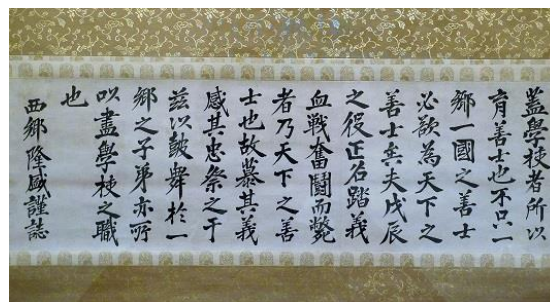 蓋學校者所以
育善士也不只一
鄉一國之善士
必欲為天下之
善士矣夫戊辰
之役正名踏義
血戦奮鬪而斃
者乃天下之善
士也故慕其義
感其忠祭之于
茲以皷舞於一
鄉之子弟亦所
以盡學校之職
也
西鄉隆盛謹誌